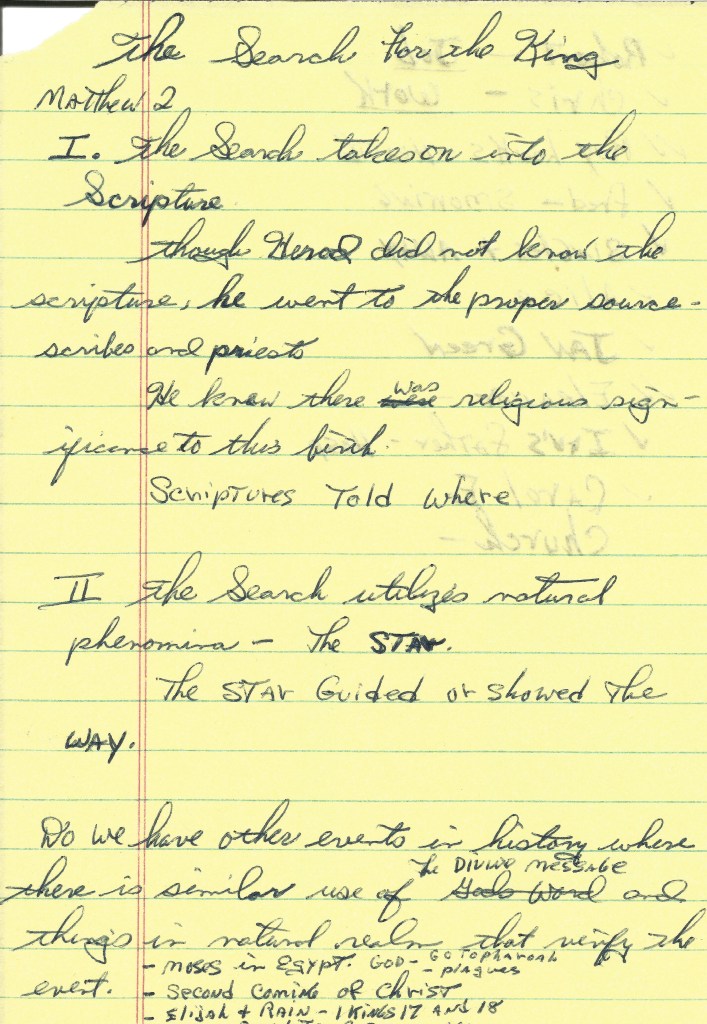 The Search For the King
Matthew 2
I. The Search takes on into the
Scripture
though Herod did not know the
scripture, he went to the proper source-
scribes and priests
He knew there was religious sign-
ificance to this birth.
Scriptures Told where
II The Search utilizes natural
phenomina - The STAR.
The STAR Guided or showed The
WAY.
Do we have other events in history where
the DIVINE MESSAGE
there is similar use of God's Word and
things in natural realm that verify the
- Moses in Egypt. GOD - Go To pharoah
- plagues
event.
- Second Coming of Christ
- Elijah + RAIN - 1 KINGS 17 AND 18